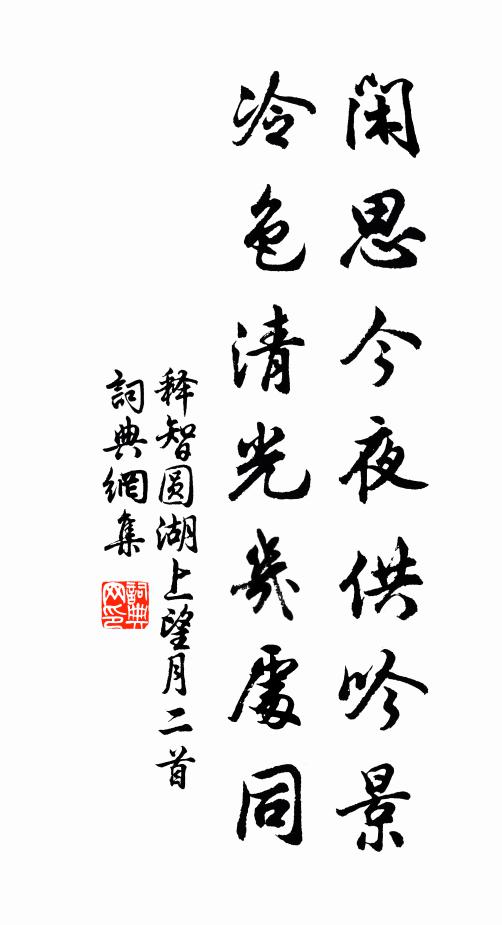 閑思今夜供吟景
冷色清光幾處同
释智圆湖上望月二首
詞典網集
詞典網印